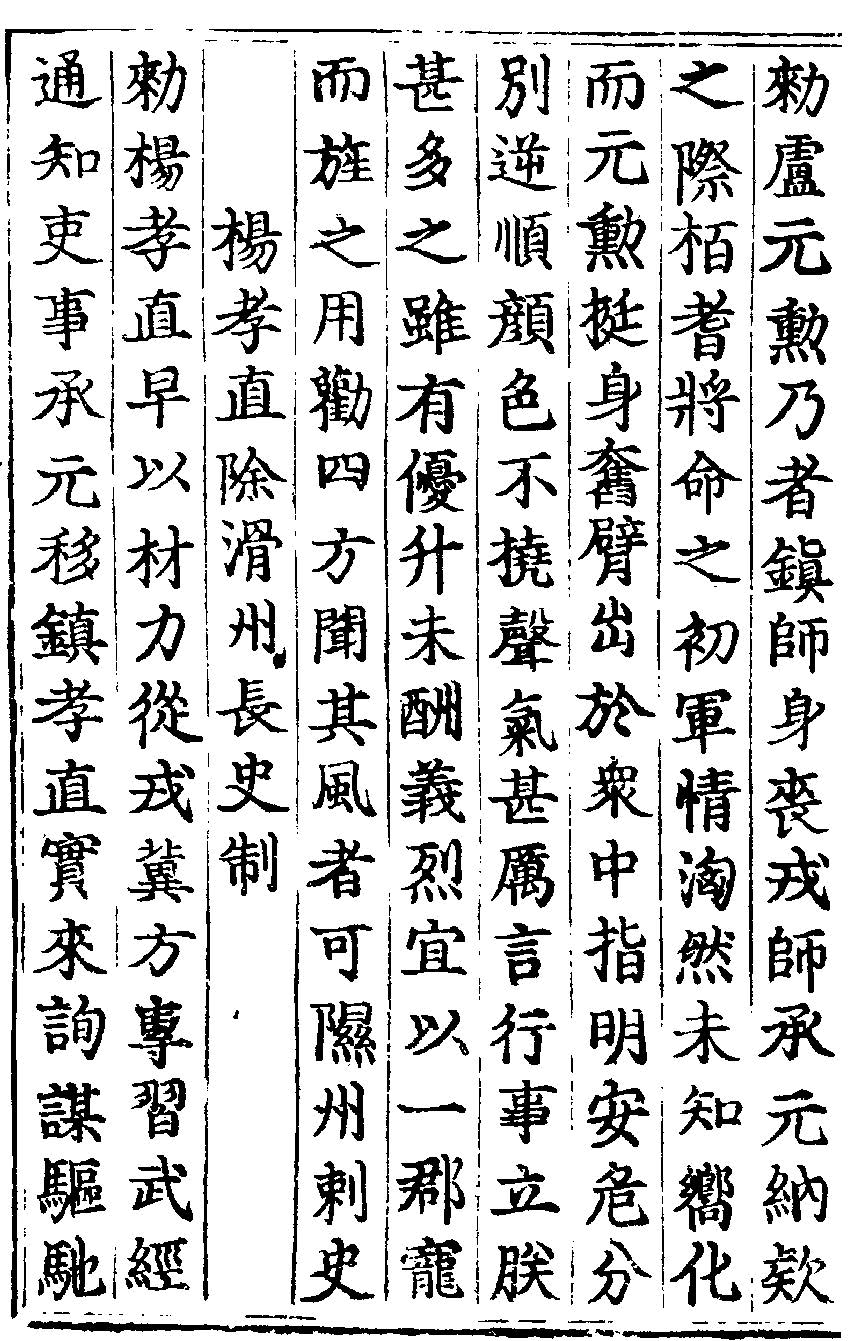 勑盧元勲乃者鎭師身喪戎師承元納欵
之際栢耆將命之初軍情洶然未知嚮化
而元勲挺身奮臂出於衆中指明安危分
別逆順顔色不撓聲氣甚厲言行事立朕
甚多之雖有優升未酬義烈宜以一郡寵
而旌之用勸四方聞其風者可隰州刺史
楊孝直除滑州長史制
勑楊孝直早以材力從戎冀方專習武經
通知吏事承元移鎮孝直實來詢謀驅馳